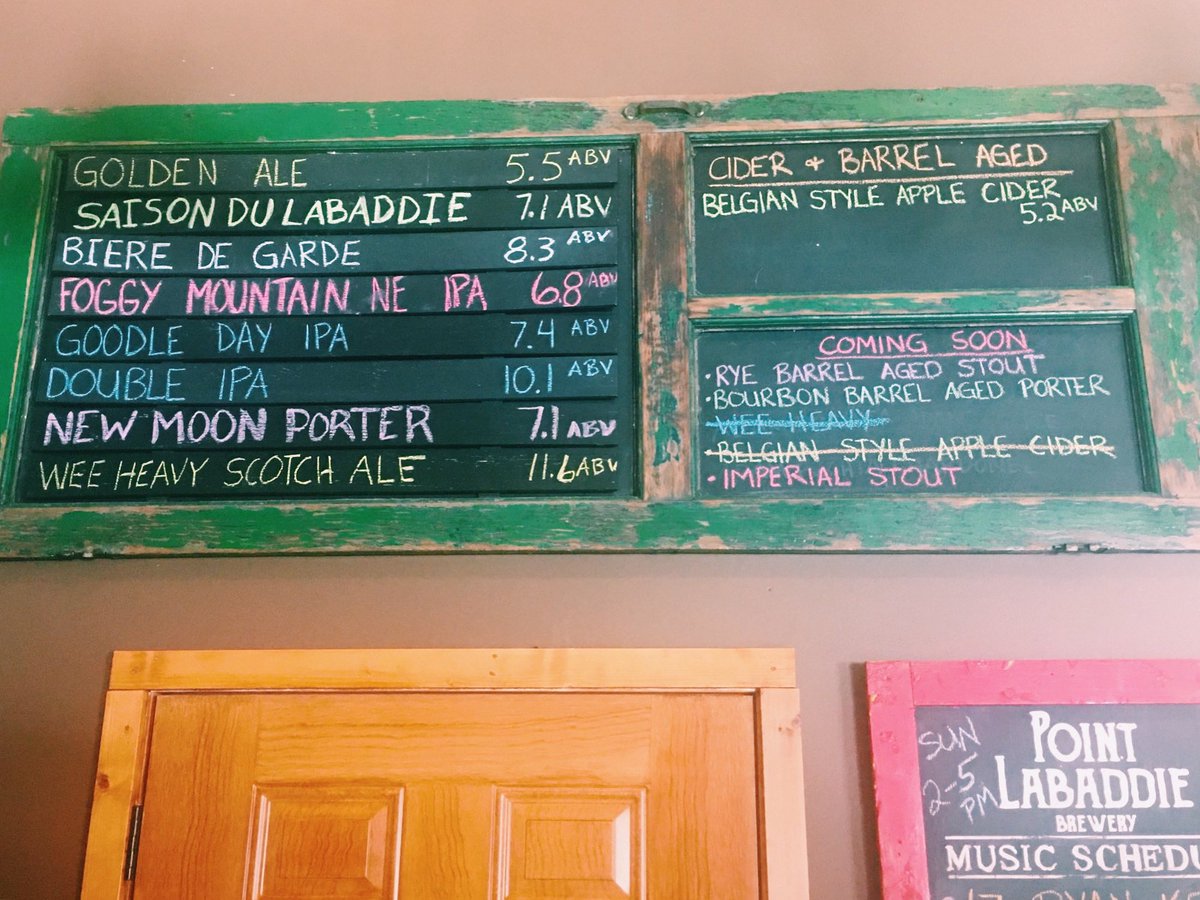 GOLDEN ALE 5.5 ABV
SAISON DU LABADDIE 7.1 ABV
BIERE DE GARDE 8.3 ABV
FOGGY MOUNTAIN NE IPA 6.8 ABV
GOODLE DAY IPA 7.4 ABV
DOUBLE IPA 10.1 ABV
NEW MOON PORTER 7.1 ABV
WEE HEAVY SCOTCH ALE 11.6 ABV
CIDER + BARREL AGED
BELGIAN STYLE APPLE CIDER
5.2 ABV
COMING SOON
• RYE BARREL AGED STOUT
• BOURBON BARREL AGED PORTER
• WEE HEAVY
• BELGIAN STYLE APPLE CIDER
• IMPERIAL STOUT
SUN
2-5
PM
POINT
LABADDIE
BREWERY
MUSIC SCHEDU